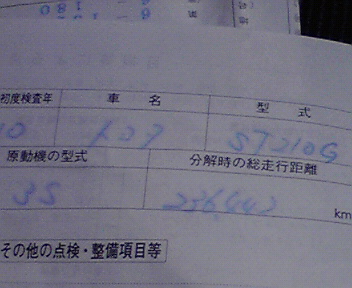 6 - 180
初度検査年 車名 型式
10 トヨタ ST210G
原動機の型式 分解時の総走行距離
3S 236,442 km
その他の点検・整備項目等